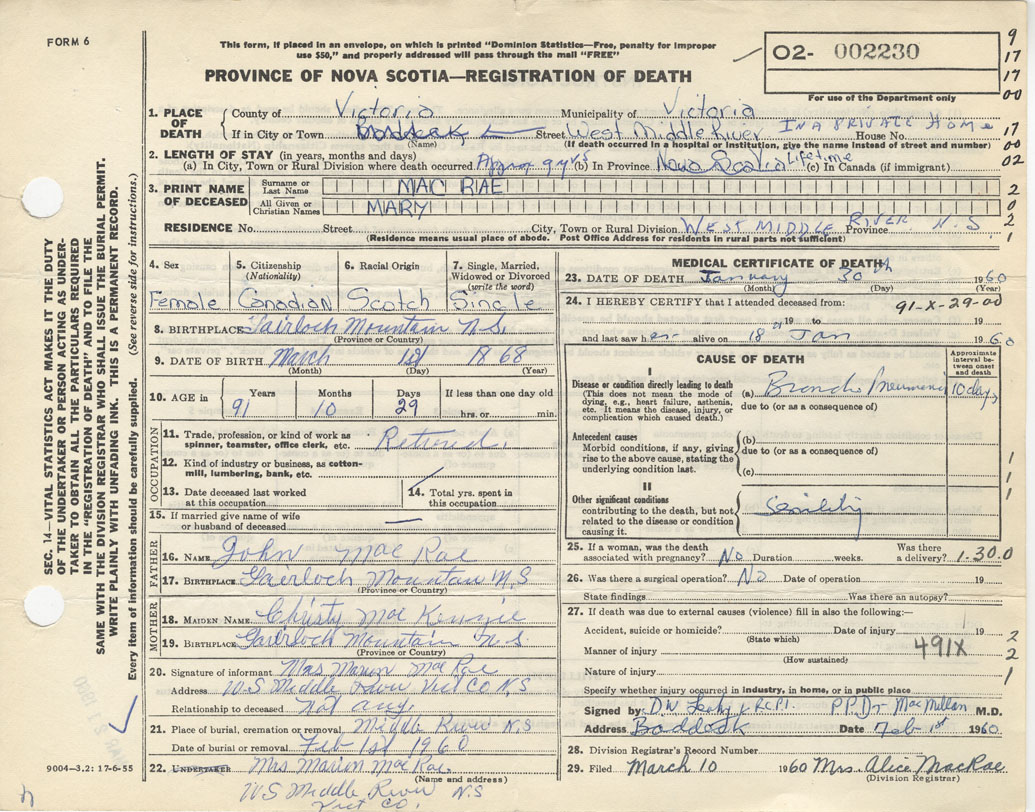 FORM 6
This form, if placed in an envelope, on which is printed "Dominion Statistics—Free, penalty for improper
use $50," and properly addressed will pass through the mail "FREE"
PROVINCE OF NOVA SCOTIA—REGISTRATION OF DEATH
O2- 002230
For use of the Department only
9
17
17
00
17
00
02
2
0
2
1
1. PLACE OF DEATH
County of Victoria Municipality of Victoria
If in City or Town Baddeck Street West Middle River IN A PRIVATE HOME House No.
(Name) (If death occurred in a hospital or institution, give the name instead of street and number)
2. LENGTH OF STAY (in years, months and days)
(a) In City, Town or Rural Division where death occurred Approx 9 yrs (b) In Province Nova Scotia Lifetime (c) In Canada (if immigrant)
3. PRINT NAME OF DECEASED
Surname or Last Name MAC RAE
All Given or Christian Names MARY
RESIDENCE No. Street City, Town or Rural Division WEST MIDDLE RIVER Province N.S.
(Residence means usual place of abode. Post Office Address for residents in rural parts not sufficient)
4. Sex
Female
5. Citizenship
(Nationality)
Canadian
6. Racial Origin
Scotch
7. Single, Married,
Widowed or Divorced
(write the word)
Single
8. BIRTHPLACE Gairloch Mountain N.S.
(Province or Country)
9. DATE OF BIRTH March 1st 1868
(Month) (Day) (Year)
10. AGE in
Years Months Days If less than one day old
91 10 29 hrs. or min.
OCCUPATION
11. Trade, profession, or kind of work as
spinner, teamster, office clerk, etc. Retired
12. Kind of industry or business, as cotton-
mill, lumbering, bank, etc.
13. Date deceased last worked
at this occupation
14. Total yrs. spent in
this occupation
15. If married give name of wife
or husband of deceased —
FATHER
16. NAME John Mac Rae
17. BIRTHPLACE Gairloch Mountain N.S
(Province or Country)
MOTHER
18. MAIDEN NAME Christy Mac Kenzie
19. BIRTHPLACE Gairloch Mountain N.S
(Province or Country)
20. Signature of informant Mrs Marion Mac Rae
Address W.S Middle River Vict CO N.S
Relationship to deceased Not any.
21. Place of burial, cremation or removal Middle River N.S
Date of burial or removal Feb 1st 1960
22. UNDERTAKER Mrs Marion Mac Rae
(Name and address)
W S Middle River N.S
Vict CO.
MEDICAL CERTIFICATE OF DEATH
23. DATE OF DEATH January 30th 1960
(Month) (Day) (Year)
24. I HEREBY CERTIFY that I attended deceased from: 91-X-29-00
19 to
and last saw her alive on 18 Jan 1960
CAUSE OF DEATH
Approximate
interval be-
tween onset
and death
I
Disease or condition directly leading to death
(This does not mean the mode of
dying, e.g., heart failure, asthenia,
etc. It means the disease, injury, or
complication which caused death.)
(a) Broncho Pneumonia 10 days
due to (or as a consequence of)
Antecedent causes
Morbid conditions, if any, giving
rise to the above cause, stating the
underlying condition last.
(b)
due to (or as a consequence of)
(c)
II
Other significant conditions
contributing to the death, but not
related to the disease or condition
causing it.
Senility
1
1
1
25. If a woman, was the death
associated with pregnancy? No Duration weeks. Was there
a delivery? 1.30.0
26. Was there a surgical operation? No Date of operation 19
State findings Was there an autopsy?
27. If death was due to external causes (violence) fill in also the following:—
Accident, suicide or homicide? Date of injury 19
(State which)
Manner of injury 491X
(How sustained)
Nature of injury
2
2
1
Specify whether injury occurred in industry, in home, or in public place
Signed by P.P. Dr MacMillan M.D.
Address Baddeck Date Feb 1st 1960
28. Division Registrar's Record Number
29. Filed March 10 1960 Mrs. Alice MacRae
(Division Registrar)
SEC. 14—VITAL STATISTICS ACT MAKES IT THE DUTY
OF THE UNDERTAKER OR PERSON ACTING AS UNDER-
TAKER TO OBTAIN ALL THE PARTICULARS REQUIRED
IN THE "REGISTRATION OF DEATH" AND TO FILE THE
SAME WITH THE DIVISION REGISTRAR WHO SHALL ISSUE THE BURIAL PERMIT.
WRITE PLAINLY WITH UNFADING INK. THIS IS A PERMANENT RECORD.
Every item of information should be carefully supplied. (See reverse side for instructions.)
9004—3.2: 17-6-55